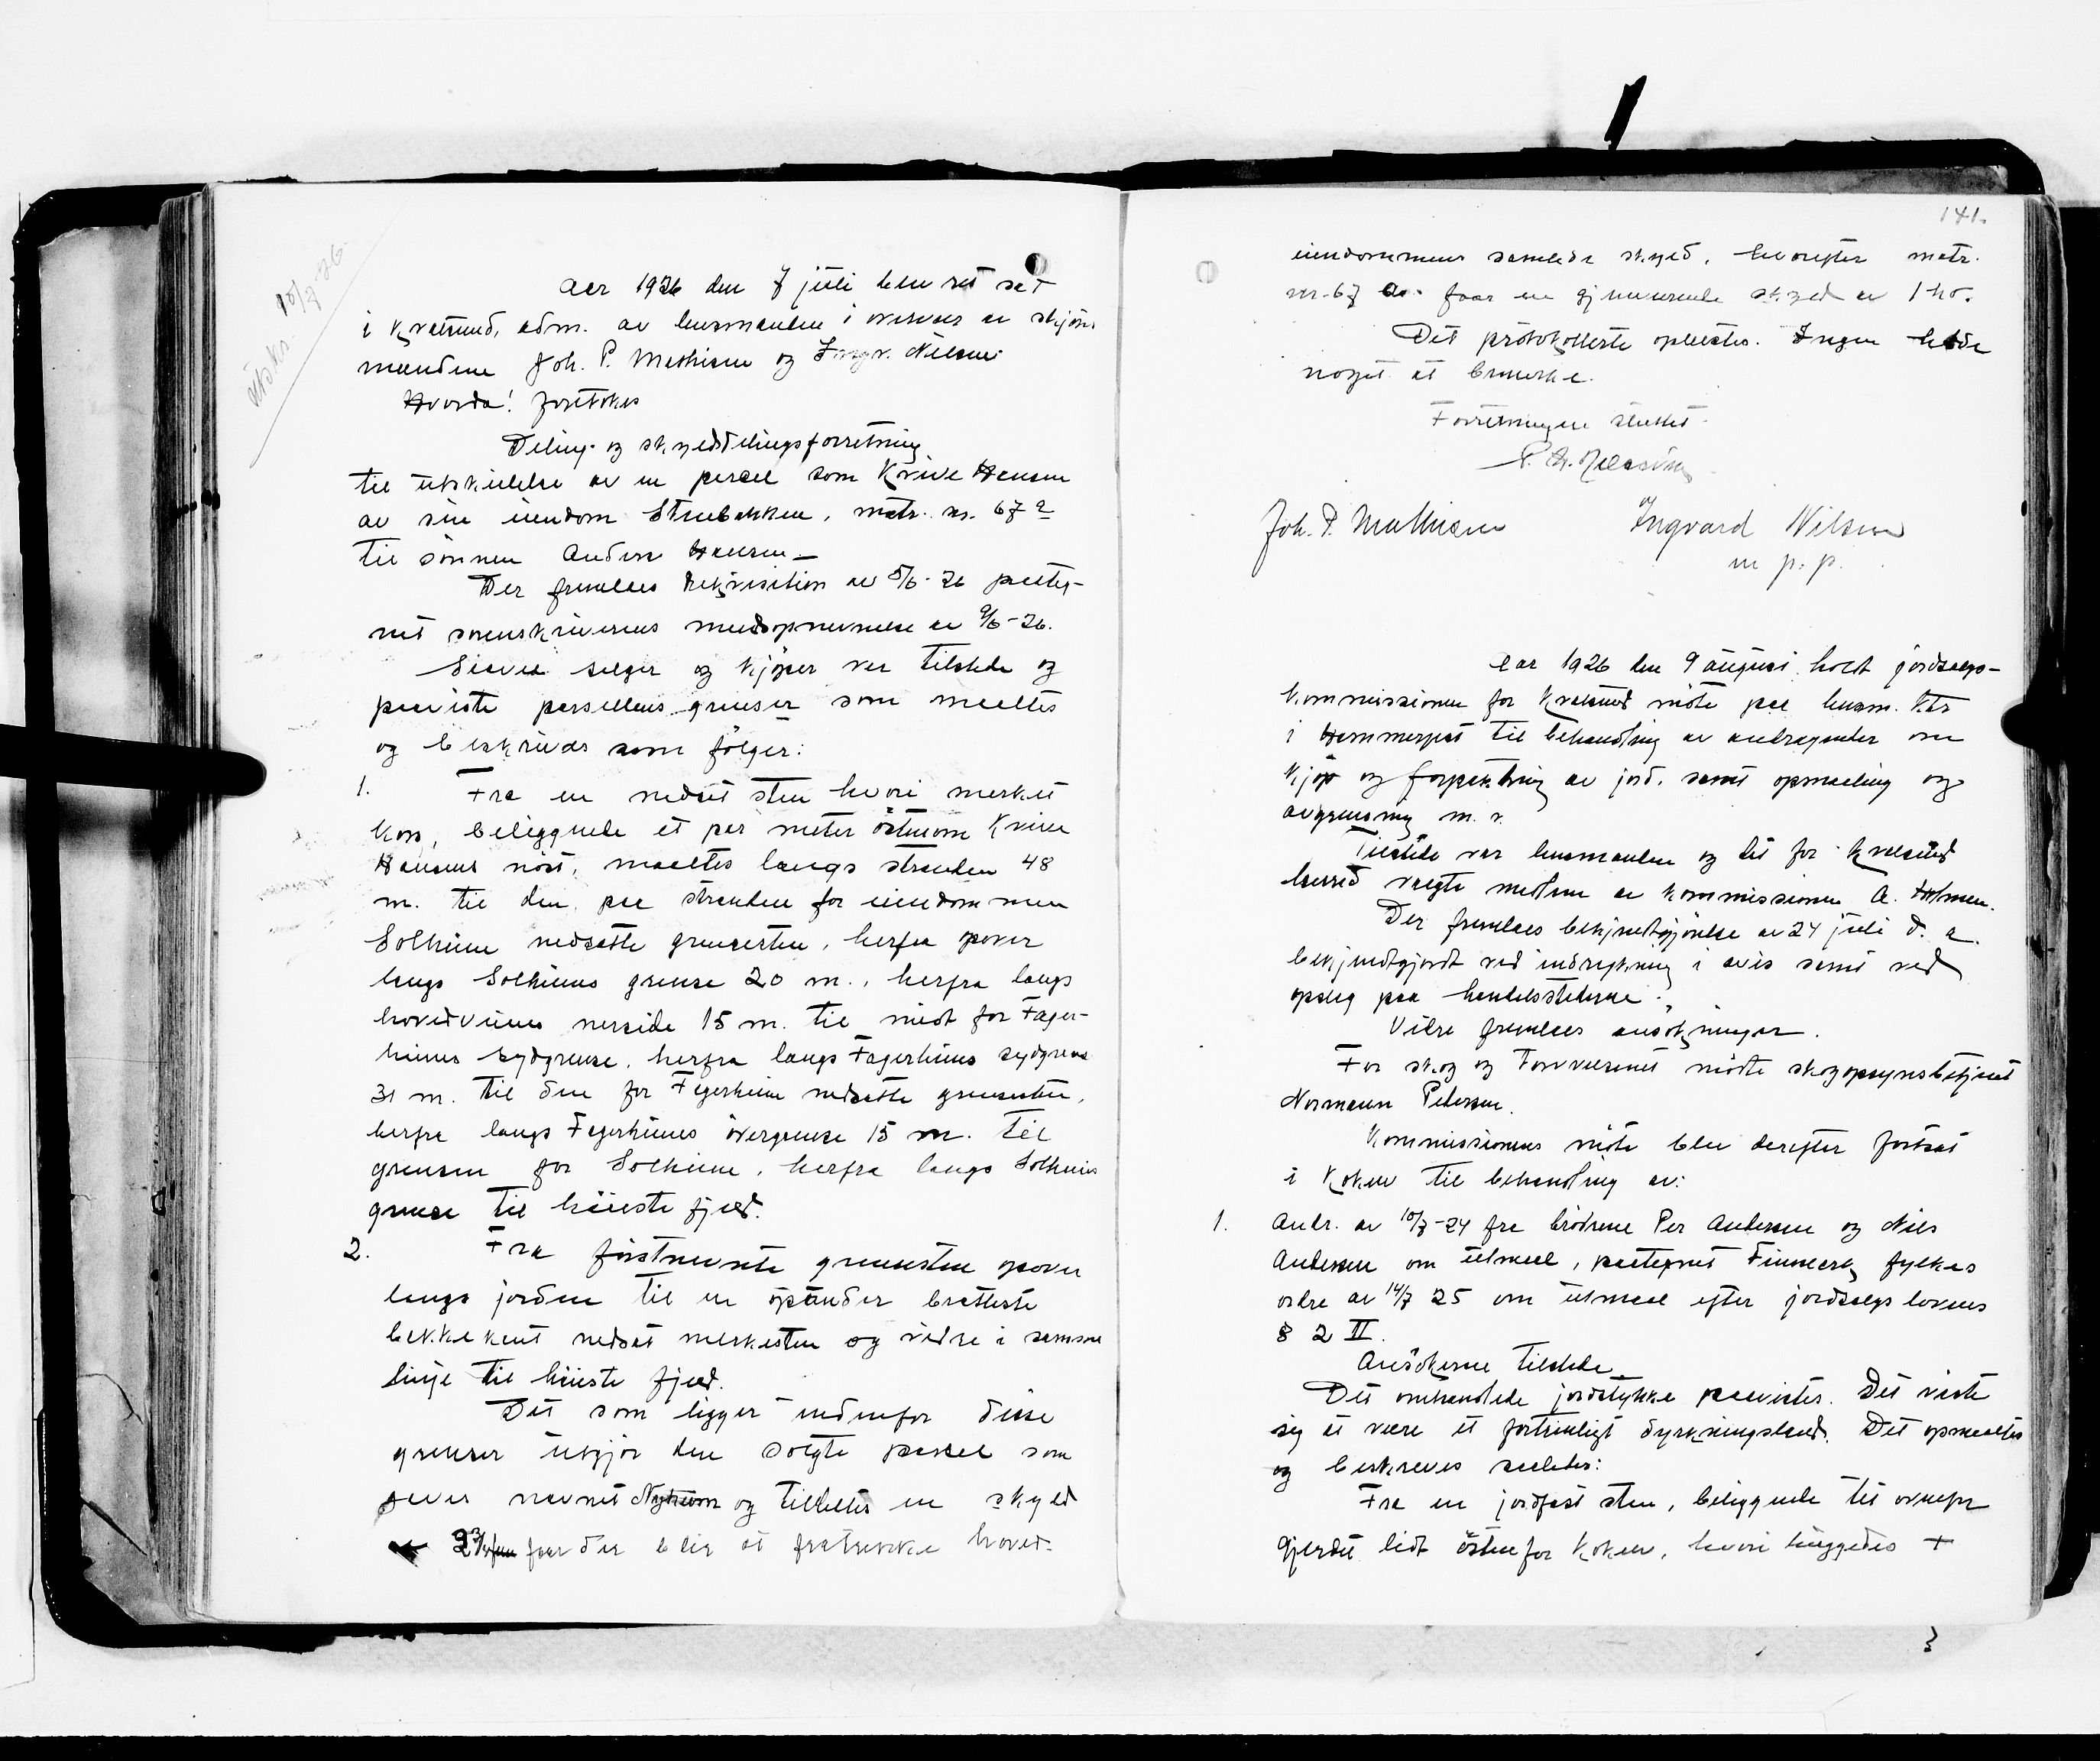 utskr. 10/7-26
Aar 1926 den 7 juli blev ret sat
i Kvalsund, adm. av lensmanden i overvær av skjöns
mændene Joh. P. Mathisen og Ingv. Nilsen.
Hvorda! foretokes
Deling- og skylddelingsforretning
til utskillelse av en parcel som Hansen
av sin eiendom Stenbakken, matr. nr. 67 a
til sönnen Anders Hansen –
Der fremlaes rekvisition av 5/6-26 paateg-
net sorenskriverens mændsopnevnelse av 9/6-26.
Saavel sælger og kjöper var tilstede og
paaviste parsellens grenser som maaltes
og beskrives som fölger:
1. Fra en nedsat sten hvori merket
kors, beliggende et par meter östenom
Hansens nöst, maaltes langs stranden 48
m. til den paa stranden for eiendommen
Solheim nedsatte grensesten, herfra opover
langs Solheims grense 20 m., herfra langs
hovedveiens nerside 15 m. til midt for Fager-
heims sydgrense, herfra langs Fagerheims sydgrense
31 m. til den for Fagerheim nedsatte grensesten,
herfra langs Fagerheims övergrense 15 m. til
grensen for Solheim, herfra langs Solheims
grense til höieste fjeld.
2. Fra förstnevnte grensesten opover
langs jorden til en öpaa bratteste
bekkekant nedsat merkesten og videre i samme
linje til höieste fjeld.
Det som ligger indenfor disse
grenser utgjör den solgte parsel som
gives navnet Nyheim og tildeltes en skyld
av 3 der blir at fratrække hoved-
141.
eiendommens samlede skyld, hvorefter matr.
nr. 67 a. faar en gjenværende skyld av 1 hö.
Det protokollerte oplæstes. Ingen hadde
noget at bemerke.
Forretningen sluttet.
Joh. P. Mathisen Ingvard Nilsen
m p. p.
Aar 1926 den 9 august holdt jordsalgs-
kommissionen for Kvalsund möte paa lensm. ktr
i Hammerfest til behandling av andragender om
kjöp og forpaktning av jord, samt opmaaling og
avgrensning m. v.
Tilstede var lensmanden og det for Kvalsund
herred valgte medlem av kommissionen A. Holmen.
Der fremlaes bekjendtgjörelse av 24 juli d. a.
bekjendtgjordt ved indrykning i avis samt ved
opslag paa handelsstederne.
Videre fremlaes ansökninger.
For skog og Torvvæsenet mötte skogopsynsbetjent
Normann Petersen.
Kommissionens möte blev derefter fortsat
i Kokelv til behandling av:
1. Andr. av 10/7-24 fra brödrene Per Andersen og Nils
Andersen om utmaal, paategnet Finmark fylkes
ordre av 14/7 25 om utmaal efter jordsalgslovens
§ 2 II.
Ansökerne tilstede.
Det omhandlede jordstykke paavistes. Det viste
sig at være et fortrinligt dyrkningsland. Det opmaaltes
og beskreves saaledes:
Fra en jordfast sten, beliggende tet ovenfor
gjerdet lidt östenfor Kokelv, hvori huggedes +